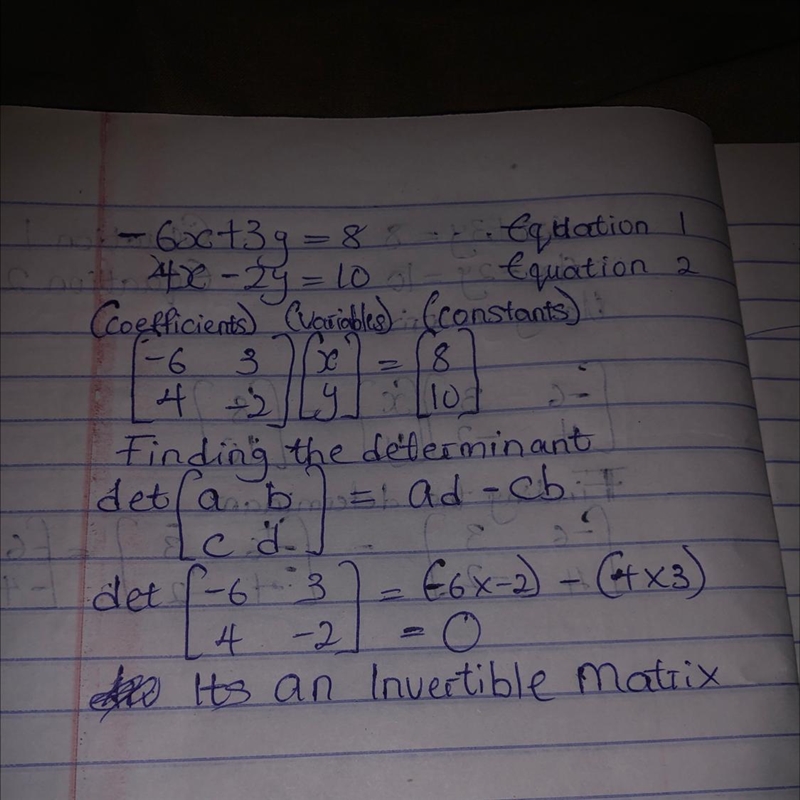 -6x+3y=8 Equation 1
4x-2y=10 Equation 2
(coefficients) (variables) (constants)
[-6 3] [x] = [8]
[4 -2] [y] [10]
Finding the determinant
det [a b] = ad - cb
[c d]
det [-6 3] = (-6x-2) - (4x3)
[4 -2] = 0
Its an Invertible Matrix